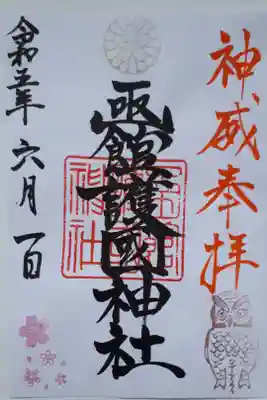 神威奉拝
凾館護國神社
令和五年六月一日